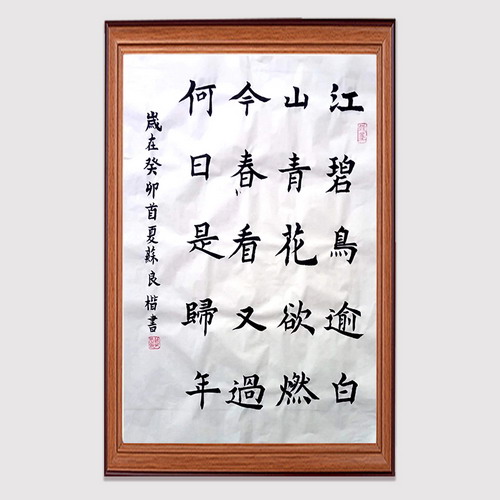 江碧鳥逾白
山青花欲燃
今春看又過
何日是歸年
歲在癸卯首夏蘇良楷書